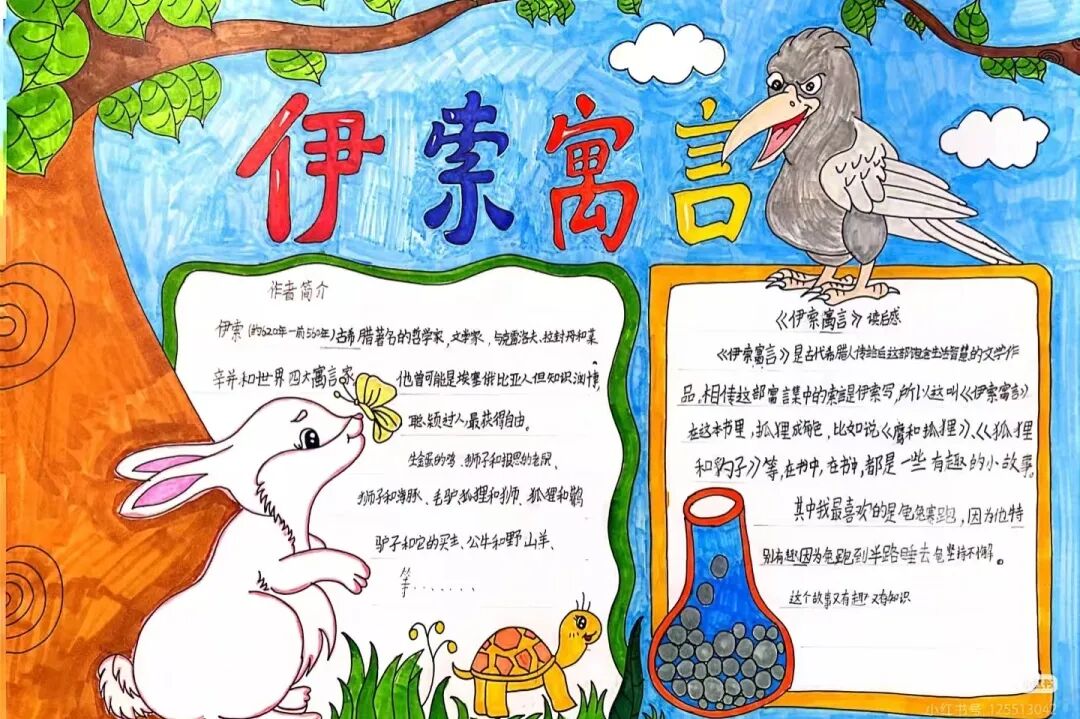 伊索寓言
作者简介
伊索(约620年—前560年)古希腊著名的哲学家,文学家,与克雷洛夫、拉封丹和莱
辛并和世界四大寓言家
他曾可能是埃塞俄比亚人但知识渊博,
聪颖过人最获得自由。
生金蛋的鸡、狮子和报恩的老鼠、
狮子和海豚、毛驴狐狸和狮、狐狸和鹳
驴子和它的买主、公牛和野山羊、
等........
《伊索寓言》读后感
《伊索寓言》是古代希腊人传给后这部饱含生活智慧的文学作
品,相传这部寓言集中的索言是伊索写,所以这叫《伊索寓言》
在这本书里,狐狸成角色,比如说《鹰和狐狸》、《狐狸
和豹子》等,在书中,在书中,都是一些有趣的小故事。
其中我最喜欢的是龟兔赛跑,因为他特
别有趣因为兔跑到半路睡去龟坚持不懈。
这个故事又有趣又有知识
小红书号 125513042